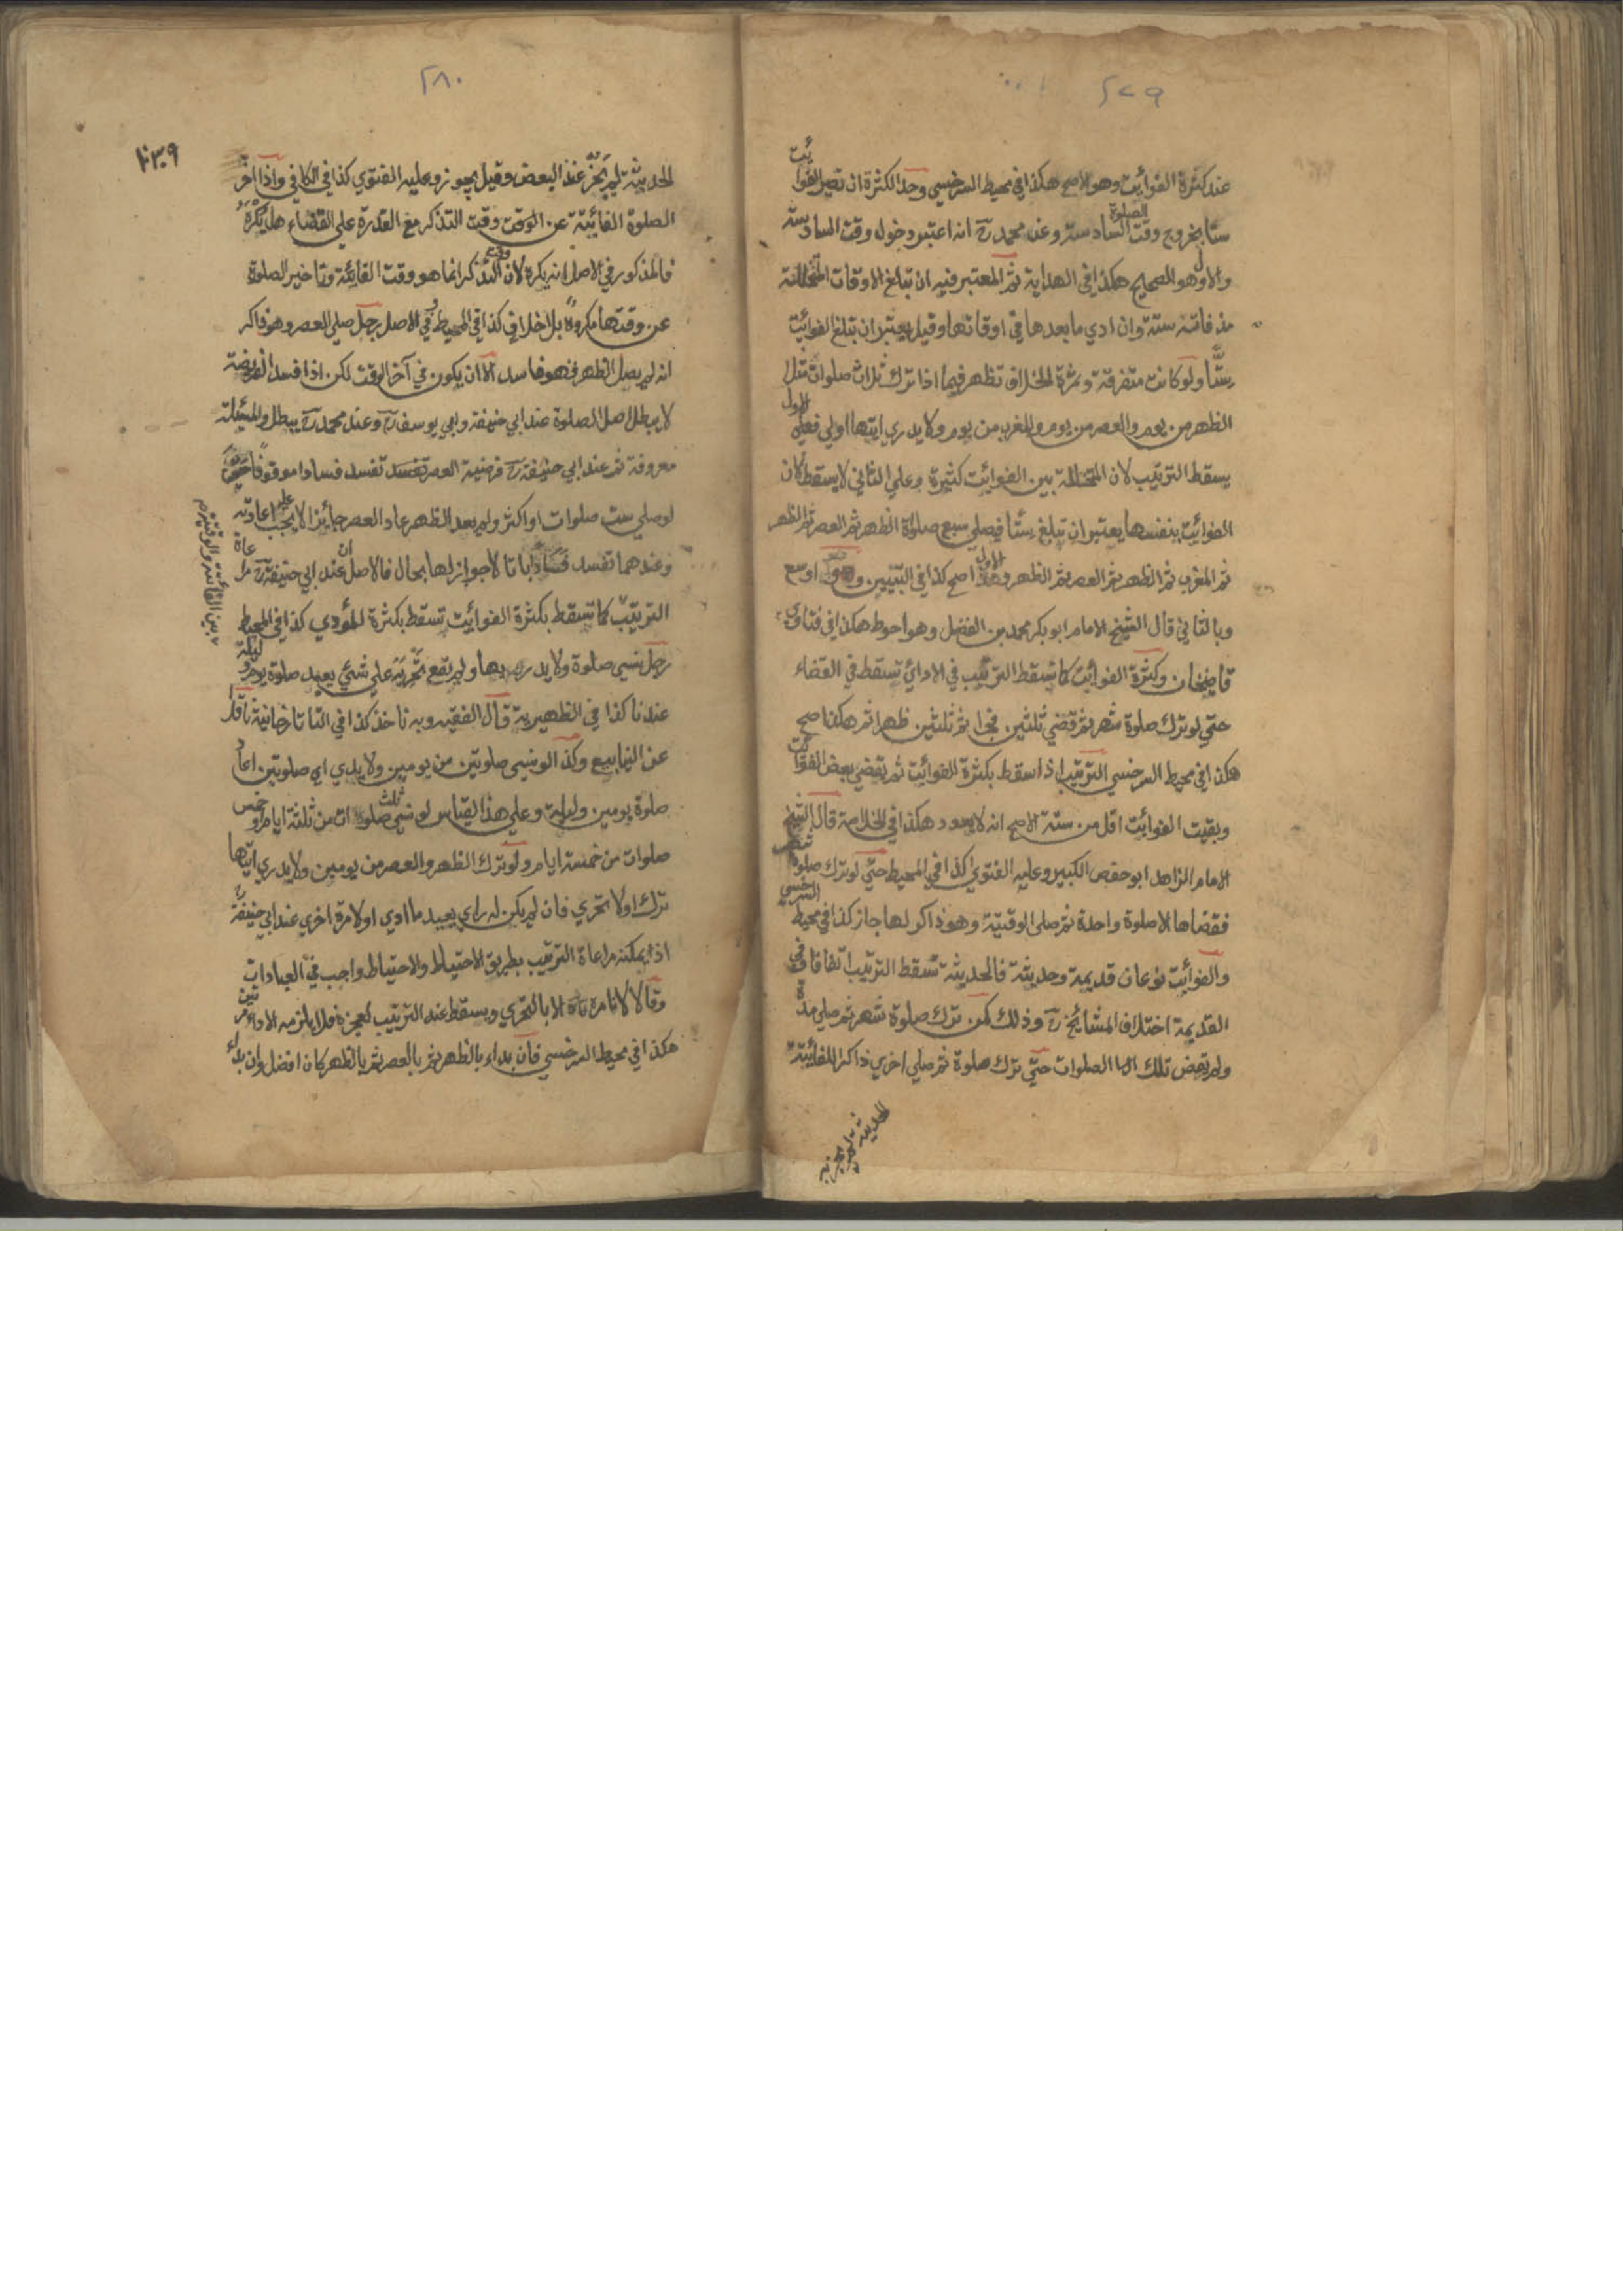 ٢٧٩
عند كثرة الفوائت وهو الاصح هكذا في محيط السرخسي وحد الكثرة ان تصير الفوائت
ستا بخروج وقت الصلوة السادسة وعن محمد رح انه اعتبر دخول وقت السادسة
والاول هو الصحيح هكذا في الهداية ثم المعتبر فيه ان تبلغ الاوقات المتخللة
مذ فاتته ستة وان ادي ما بعدها في اوقاتها وقيل يعتبر ان تبلغ الفوائت
ستا ولو كانت متفرقة وثمرة الخلاف تظهر فيما اذا ترك ثلاث صلوات مثلا
الظهر من يوم والعصر من يوم والمغرب من يوم ولا يدري ايتها اولي فعلي الاول
يسقط الترتيب لان المتخللة بين الفوائت كثيرة وعلي الثاني لا يسقط لان
الفوائت بنفسها يعتبر ان تبلغ ستا فيصلي سبع صلوات الظهر ثم العصر ثم الظهر
ثم المغرب ثم الظهر ثم العصر ثم الظهر والاول اصح كذا في التبيين اوسع
وبالثاني قال الشيخ الامام ابو بكر محمد بن الفضل وهو احوط هكذا في فتاوي
قاضيخان وكثرة الفوائت كما تسقط الترتيب في الادائ تسقط في القضاء
حتي لو ترك صلوة شهر ثم قضي ثلثين فجرا ثم ثلثين ظهرا ثم هكذا صح
هكذا في محيط السرخسي الترتيب اذا سقط بكثرة الفوائت ثم تقضي بعض الفوائت
وبقيت الفوائت اقل من ستة الاصح انه لا يعود هكذا في الخلاصة قال الشيخ
الامام الزاهد ابو حفص الكبير وعليه الفتوي كذا في المحيط حتي لو ترك صلوة شهر
فقضاها الا صلوة واحدة ثم صلي الوقتية وهو ذاكر لها جاز كذا في محيط السرخسي
والفوائت نوعان قديمة وحديثة فالحديثة تسقط الترتيب اتفاقا وفي
القديمة اختلاف المشائخ رح وذلك كمن ترك صلوة شهر ثم صلي مدة
ولم يقض تلك الصلوات حتي ترك صلوة ثم صلي اخري ذاكرا للفائتة
الحديثة لم يجز
٢٨٠
١٠٣٩
الحديثة لم يجز عند البعض وقيل يجوز وعليه الفتوي كذا في الكافي واذا اخر
الصلوة الفائتة عن الوقت وقت التذكر مع القدرة علي القضاء هل يكره
فالمذكور في الاصل انه يكره لان وقت التذكر انما هو وقت الفائتة وتاخير الصلوة
عن وقتها مكروه بلا خلاف كذا في المحيط وفي الاصل رجل صلي العصر وهو ذاكر
انه لم يصل الظهر فهو فاسد الا ان يكون في آخر الوقت لكن اذا فسد الفريضة
لا يبطل اصل الصلوة عند ابي حنيفة وابي يوسف رح وعند محمد رح يبطل والمسئلة
معروفة ثم عند ابي حنيفة رح فرضية العصر تفسد فسادا موقوفا حتي
لو صلي ست صلوات او اكثر ولم يعد الظهر عاد العصر جائزا لا يجب عليه اعادته
وعندهما تفسد فسادا باتا لا جواز لها بحال فالاصل ان عند ابي حنيفة رح مراعاة
الترتيب كما تسقط بكثرة الفوائت تسقط بكثرة المؤدي كذا في المحيط
بين الفائتة والوقتية
رجل نسي صلوة ولا يدريها ولم يقع تحريه علي شئ يعيد صلوة يوم وليلة
عندنا كذا في الظهيرية قال الفقيه وبه ناخذ كذا في التاتارخانية ناقلا
عن الينابيع وكذا لو نسي صلوتين من يومين ولا يدري اي صلوتين اعاد
صلوة يومين وليلة وعلي هذا القياس لو نسي ثلث صلوات من ثلثة ايام وخمس
صلوات من خمسة ايام ولو ترك الظهر والعصر من يومين ولا يدري ايتها
ترك اولا تحري فان لم يكن له راي يعيد ما ادي اولا مرة اخري عند ابي حنيفة رح
اذ يمكنه مراعاة الترتيب بطريق الاحتياط والاحتياط واجب في العبادات
وقالا لا نامره الا بالتحري ويسقط عنه الترتيب لعجزه فلا يلزمه الاداء مرتين
هكذا في محيط السرخسي فان بداء بالظهر ثم بالعصر ثم بالظهر كان افضل وان بداء